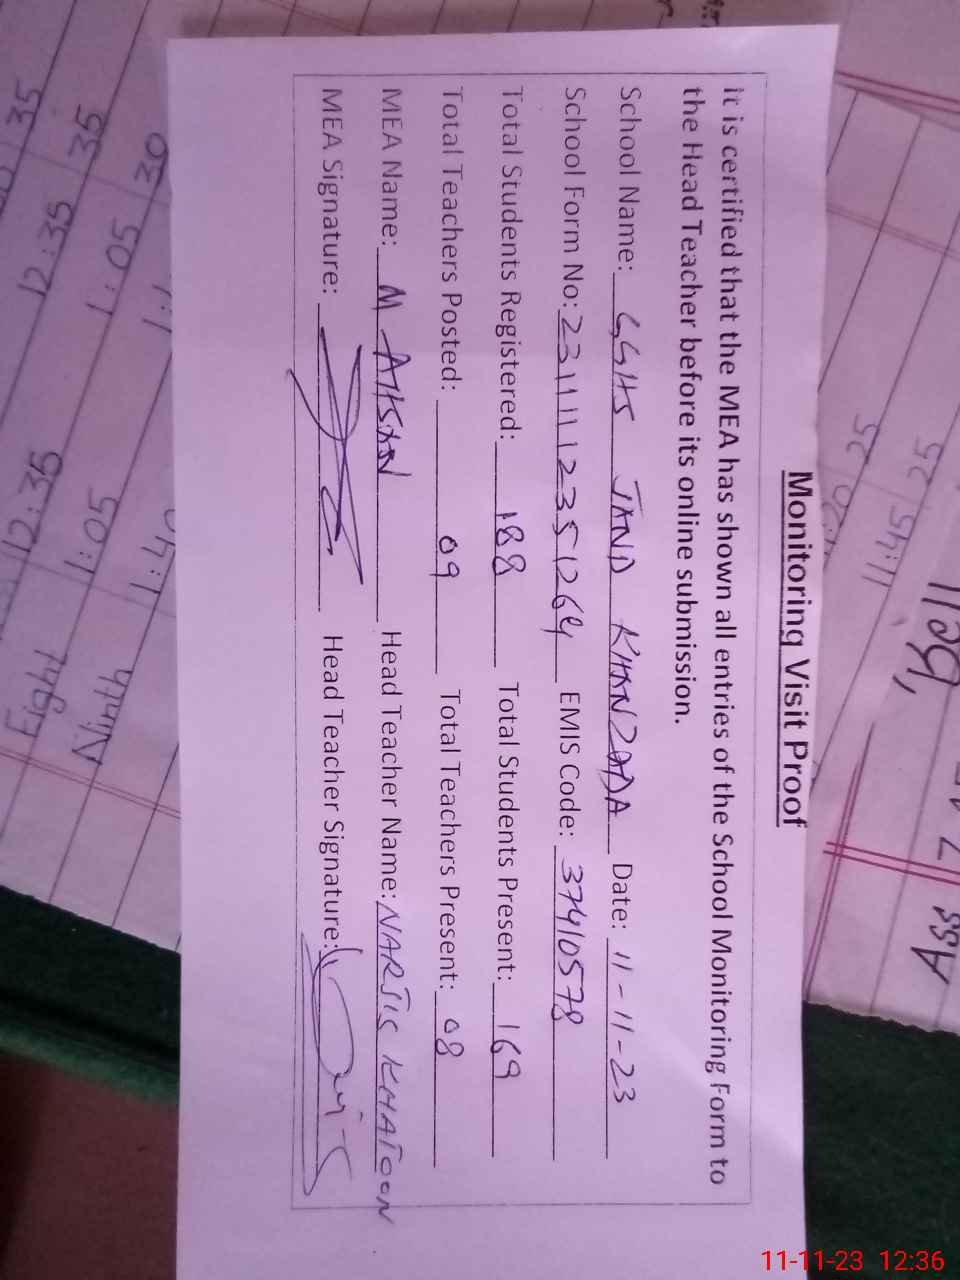 Monitoring Visit Proof
It is certified that the MEA has shown all entries of the School Monitoring Form to
the Head Teacher before its online submission.
School Name: GGHS JAND KHANZADA Date: 11-11-23
School Form No: 2311112351264 EMIS Code: 37410578
Total Students Registered: 188 Total Students Present: 169
Total Teachers Posted: 09 Total Teachers Present: 08
MEA Name: M AHSAN Head Teacher Name: NARJIS KHATOON
MEA Signature: Head Teacher Signature:
35
35
12:35
1:05
12:35
1:05
Eight
Ninth
11-11-23 12:36